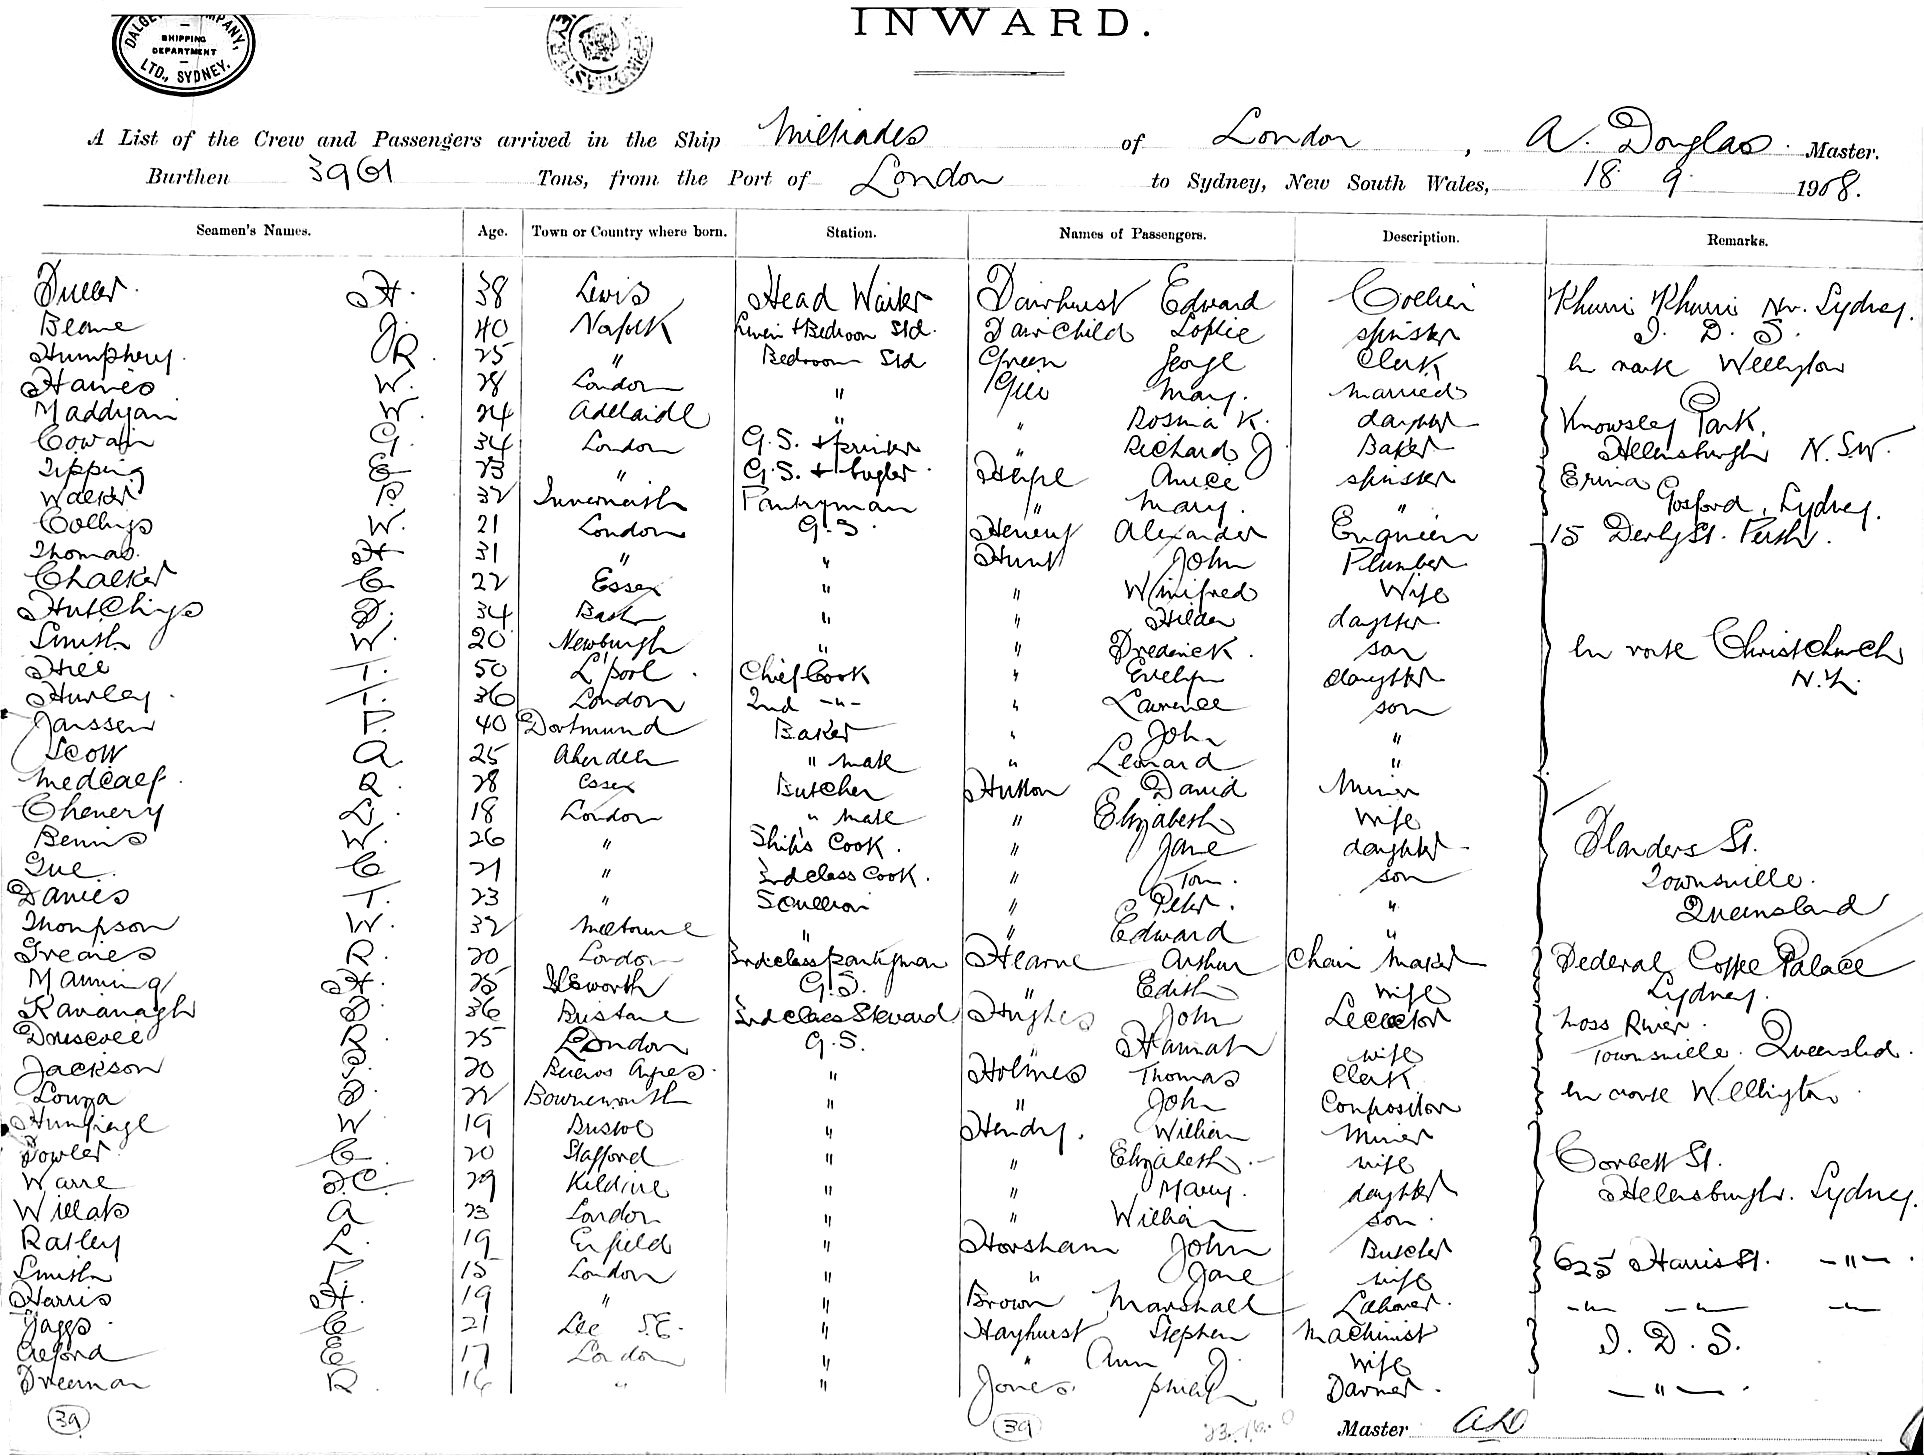 DALGETY & COMPANY, LTD., SYDNEY.
SHIPPING DEPARTMENT
INWARD.
A List of the Crew and Passengers arrived in the Ship Miltiades of London, A. Douglas. Master.
Burthen 3961 Tons, from the Port of London to Sydney, New South Wales, 18 9 1908.
Seamen's Names. Age. Town or Country where born. Station. Names of Passengers. Description. Remarks.
H. 38 Lewis Head Waiter Fairhurst Edward Khurri Khurri Nr. Sydney.
J. 40 Norfolk Bedroom Std. Fairchild Sophie spinster I. D. S.
Humphery. R. 25 " Bedroom Std Green George Clerk En route Wellington
W. 28 London " Gill Mary. married
W. 24 Adelaide " " K. daughter Knowsley Park,
Cowan G. 34 London G.S. + printer " Richard J Baker Helensburgh N.S.W.
Tipping 23 " G.S. + bugler. Alice spinster Erina
Walker 32 Pantryman " Mary. " Gosford, Sydney.
Collings W. 21 London G.S. Alexander Engineer 15 Derby St. Perth.
Thomas. H 31 " " Hunt John Plumber
Chalker C 22 Essex " " Winifred Wife
Hutchings 34 " " Hilda daughter.
Smith W. 20 Newburgh " " Frederick. son En route Christchurch
Hill T. 50 L'pool. Chief Cook " Evelyn daughter N.Z.
Hurley. T. 36 London 2nd -"- " Laurence son
Janssen P. 40 Dortmund Baker " John "
Scott A. 25 Aberdeen " mate " Leonard "
Medcalf. R. 28 Essex Butcher Hutton David Miner
Chenery L. 18 London " mate " Elizabeth wife
W. 26 " Ship's Cook. " Jane daughter Flanders St.
C 21 " 3rd class Cook. " Tom. son Townsville.
Davies T. 23 " Scullion " Peter. " Queensland
Thompson W. 32 Melbourne " " Edward "
Greaves R. 20 London 3rd class pantryman Hearne Arthur Chair Maker Federal Coffee Palace
Manning H. 25 Isleworth G.S. " Edith wife Sydney.
Kavanagh 36 Brisbane 3rd class Steward Hughes John Ross River.
Driscoll R. 25 London G.S. " Hannah wife Townsville. Queensland.
Jackson 20 Buenos Ayres. " Holmes Thomas Clerk
22 Bournemouth " " John Compositor En route Wellington
W 19 Bristol " Hendry. William Miner
Fowler C. 20 Stafford " " Elizabeth. wife Corbett St.
Warre F.C. 29 Kildare " " Mary. daughter Helensburgh. Sydney.
A 23 London " " William son.
L. 19 Enfield " Horsham John Butcher 625 Harris St. -"-
Smith 15 London " " Jane wife
Harris H. 19 " " Brown Marshall Labourer. -"- -"- -"-
C 21 Lee S.E. " Hayhurst Stephen Machinist I. D. S.
E 17 London " " Ann J. wife
Freeman R. 16 " " Jones. Farmer. -"-
39 39 Master AD